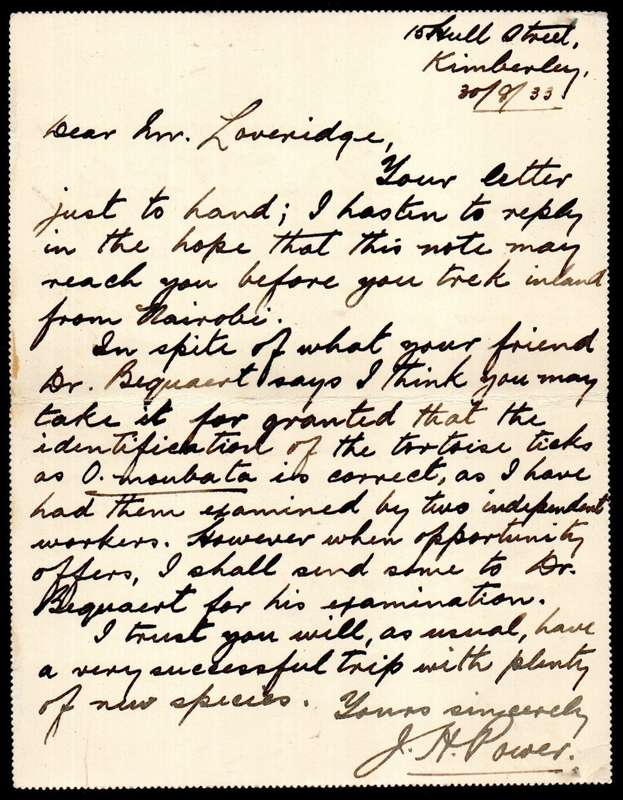 15 Hull Street,
Kimberley,
30/8/33.
Dear Mr. Loveridge,
Your letter
just to hand; I hasten to reply
in the hope that this note may
reach you before you trek inland
from Nairobi.
In spite of what your friend
Dr. Bequaert says I think you may
take it for granted that the
identification of the tortoise ticks
as O. moubata is correct, as I have
had them examined by two independent
workers. However when opportunity
offers, I shall send some to Dr.
Bequaert for his examination.
I trust you will, as usual, have
a very successful trip with plenty
of new species. Yours sincerely
J. H. Power.